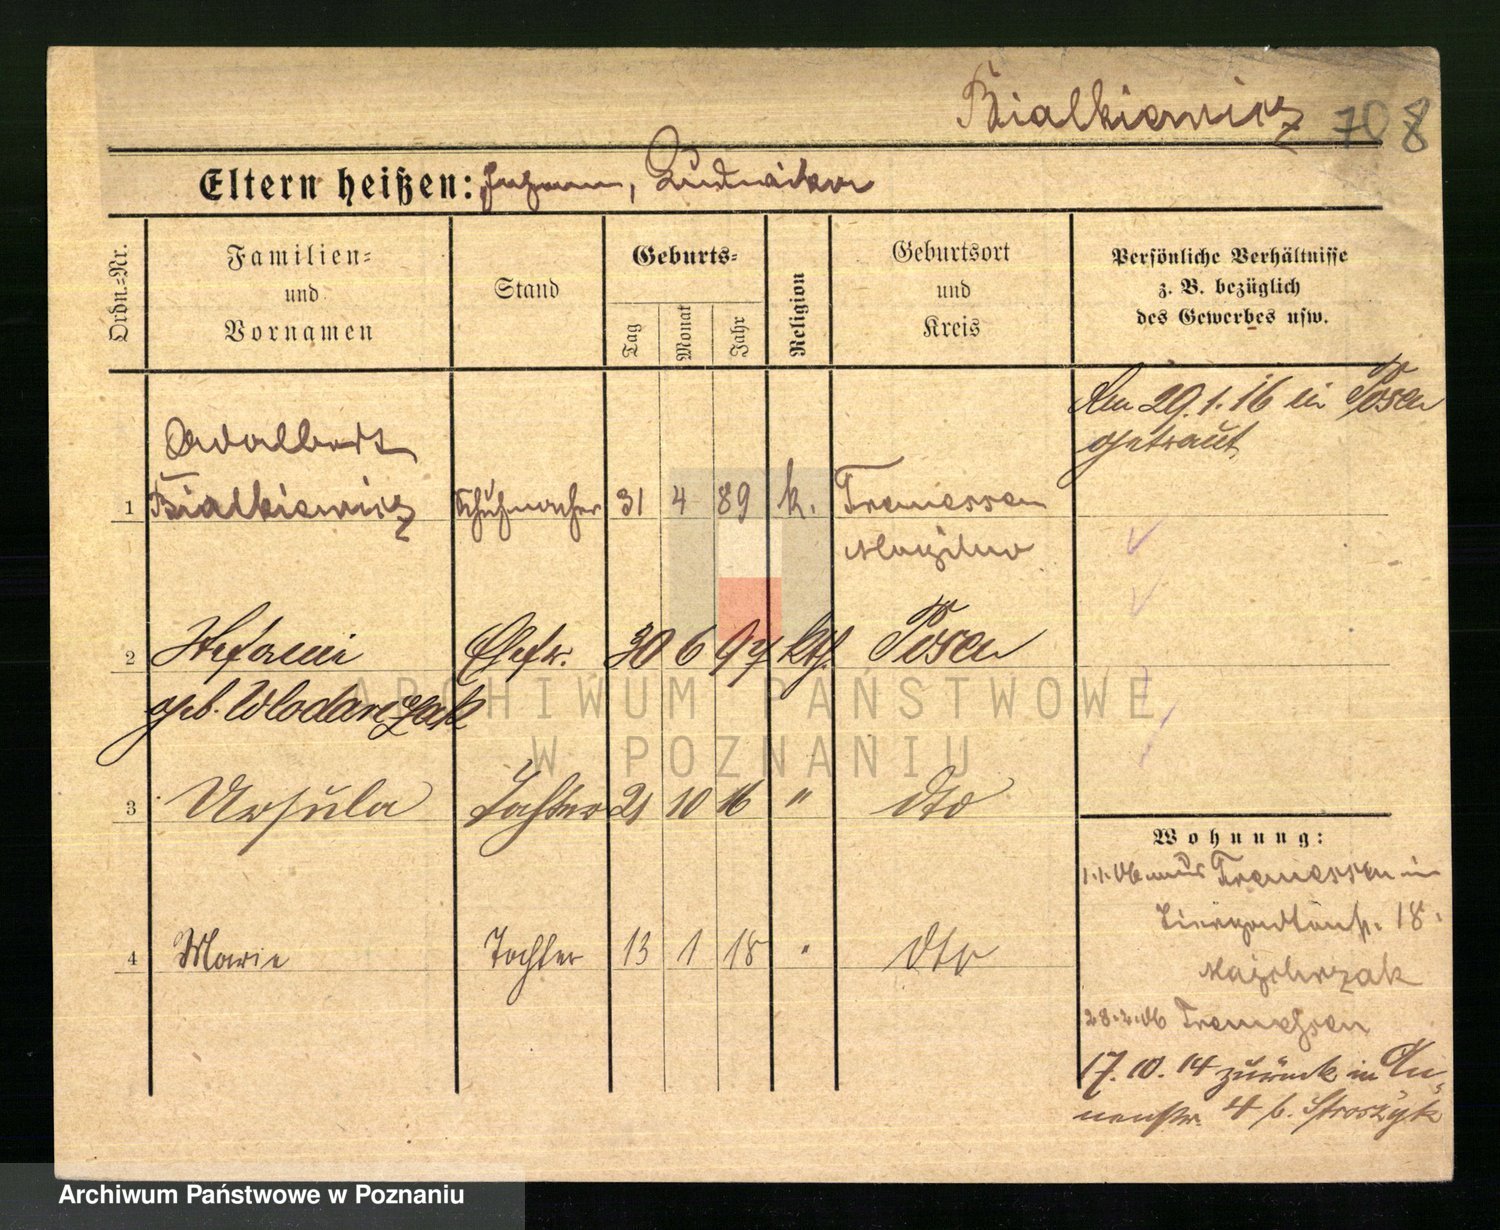 Bialkiewicz 708
Eltern heißen: Johann, Ludwika
Ordn.-Nr.
Familien-
und
Vornamen
Stand
Geburts-
Tag
Monat
Jahr
Religion
Geburtsort
und
Kreis
Persönliche Verhältnisse
z. B. bezüglich
des Gewerbes usw.
Am 29.1.16 in Posen
getraut
Adalbert
1 Bialkiewicz Schuhmacher 31 4 89 k. Tremessen
Mogilno
2 Stefanie Ehefr. 30 6 97 kth Posen
geb. Wlodarczak
3 Ursula Tochter 21 10 16 " dto
4 Marie Tochter 13 1 18 " dto
Wohnung:
1.1.06 aus Tremessen in
18.
Majchrzak
28.2.06 Tremessen
17.10.14 zurück in An-
nenstr. 4 b. Stroszyk
ARCHIWUM PAŃSTWOWE
W POZNANIU
Archiwum Państwowe w Poznaniu